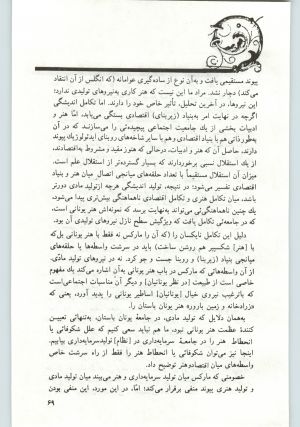 پیوند مستقیمی یافت و به‌آن نوع از ساده‌گیری عوامانه (که انگلس از آن انتقاد
می‌کند) دچار نشد. مراد ما این نیست که هنر کاری به‌نیروهای تولیدی ندارد؛
این نیروها، در آخرین تحلیل، تأثیر خاص خود را دارند. اما تکامل اندیشگی
اگرچه در نهایت امر به‌بنیاد (زیربنای) اقتصادی بستگی می‌یابد، امّا هنر و
ادبیات بخشی از یك جامعیت اجتماعی پیچیده‌ئی را می‌سازند که در آن
به‌طور ذاتی هم با بنیاد اقتصادی و هم با سایر رشته‌های روبنای ایدئولوژیك پیوند
دارند. حاصل آن که هنر و ادبیات، درحالی که هنوز مقید و مشروط به‌اقتصادند،
از یك استقلال نسبی برخوردارند که بسیار گسترده‌تر از استقلال علم است.
میزان آن استقلال مستقیماً با تعداد حلقه‌های میانجی اتصال میان هنر و بنیاد
اقتصادی تفسیر می‌شود؛ در نتیجه، تولید اندیشگی هرچه ازتولید مادی دورتر
باشد، میان تکامل هنری و تکامل اقتصادی ناهماهنگی بیش‌تری پیدا می‌شود.
یك چنین ناهماهنگی‌ئی می‌تواند به‌نهایت برسد که نمونه‌اش هنر یونانی است
که در جامعه‌ئی تکامل یافت که ویژگیش سطح نازل نیروهای تولیدی آن بود.
دلیل این تکامل نایکسان را (که آن را مارکس نه فقط با هنر یونانی بل‌که
با [هنر] شکسپیر هم روشن ساخت) باید در سرشت واسطه‌ها یا حلقه‌های
میانجی بنیاد (زیربنا) و روبنا جست و جو کرد، نه در نیروهای تولید مادّی.
از آن واسطه‌هائی که مارکس در باب هنر یونانی به‌آن اشاره می‌کند یك مفهوم
خاصی است از طبیعت [در نظر یونانیان] و دیگر آن مناسبات اجتماعی‌است
که باترغیب نیروی خیال [یونانیان] اساطیر یونانی را پدید آورد، یعنی که
«زرادخانه و زمین بارور» هنر یونان باستان را.
به‌همان دلایل که تولید مادی، در جامعهٔ یونان باستان، به‌تنهائی تعیین
کنندهٔ عظمت هنر یونانی نبود، ما هم نباید سعی کنیم که علل شکوفائی یا
انحطاط هنر را در جامعهٔ سرمایه‌داری در [نظام] تولیدسرمایه‌داری بیابیم.
اینجا نیز می‌توان شکوفائی یا انحطاط هنر را فقط از راه سرشت خاص
واسطه‌های میان اقتصاد و هنر توضیح داد.
خصومتی که مارکس میان تولید سرمایه‌داری و هنر می‌بیند میان تولید مادی
و تولید هنری پیوند منفی برقرار می‌کند؛ امّا، در این مورد، این منفی بودن
۶۹